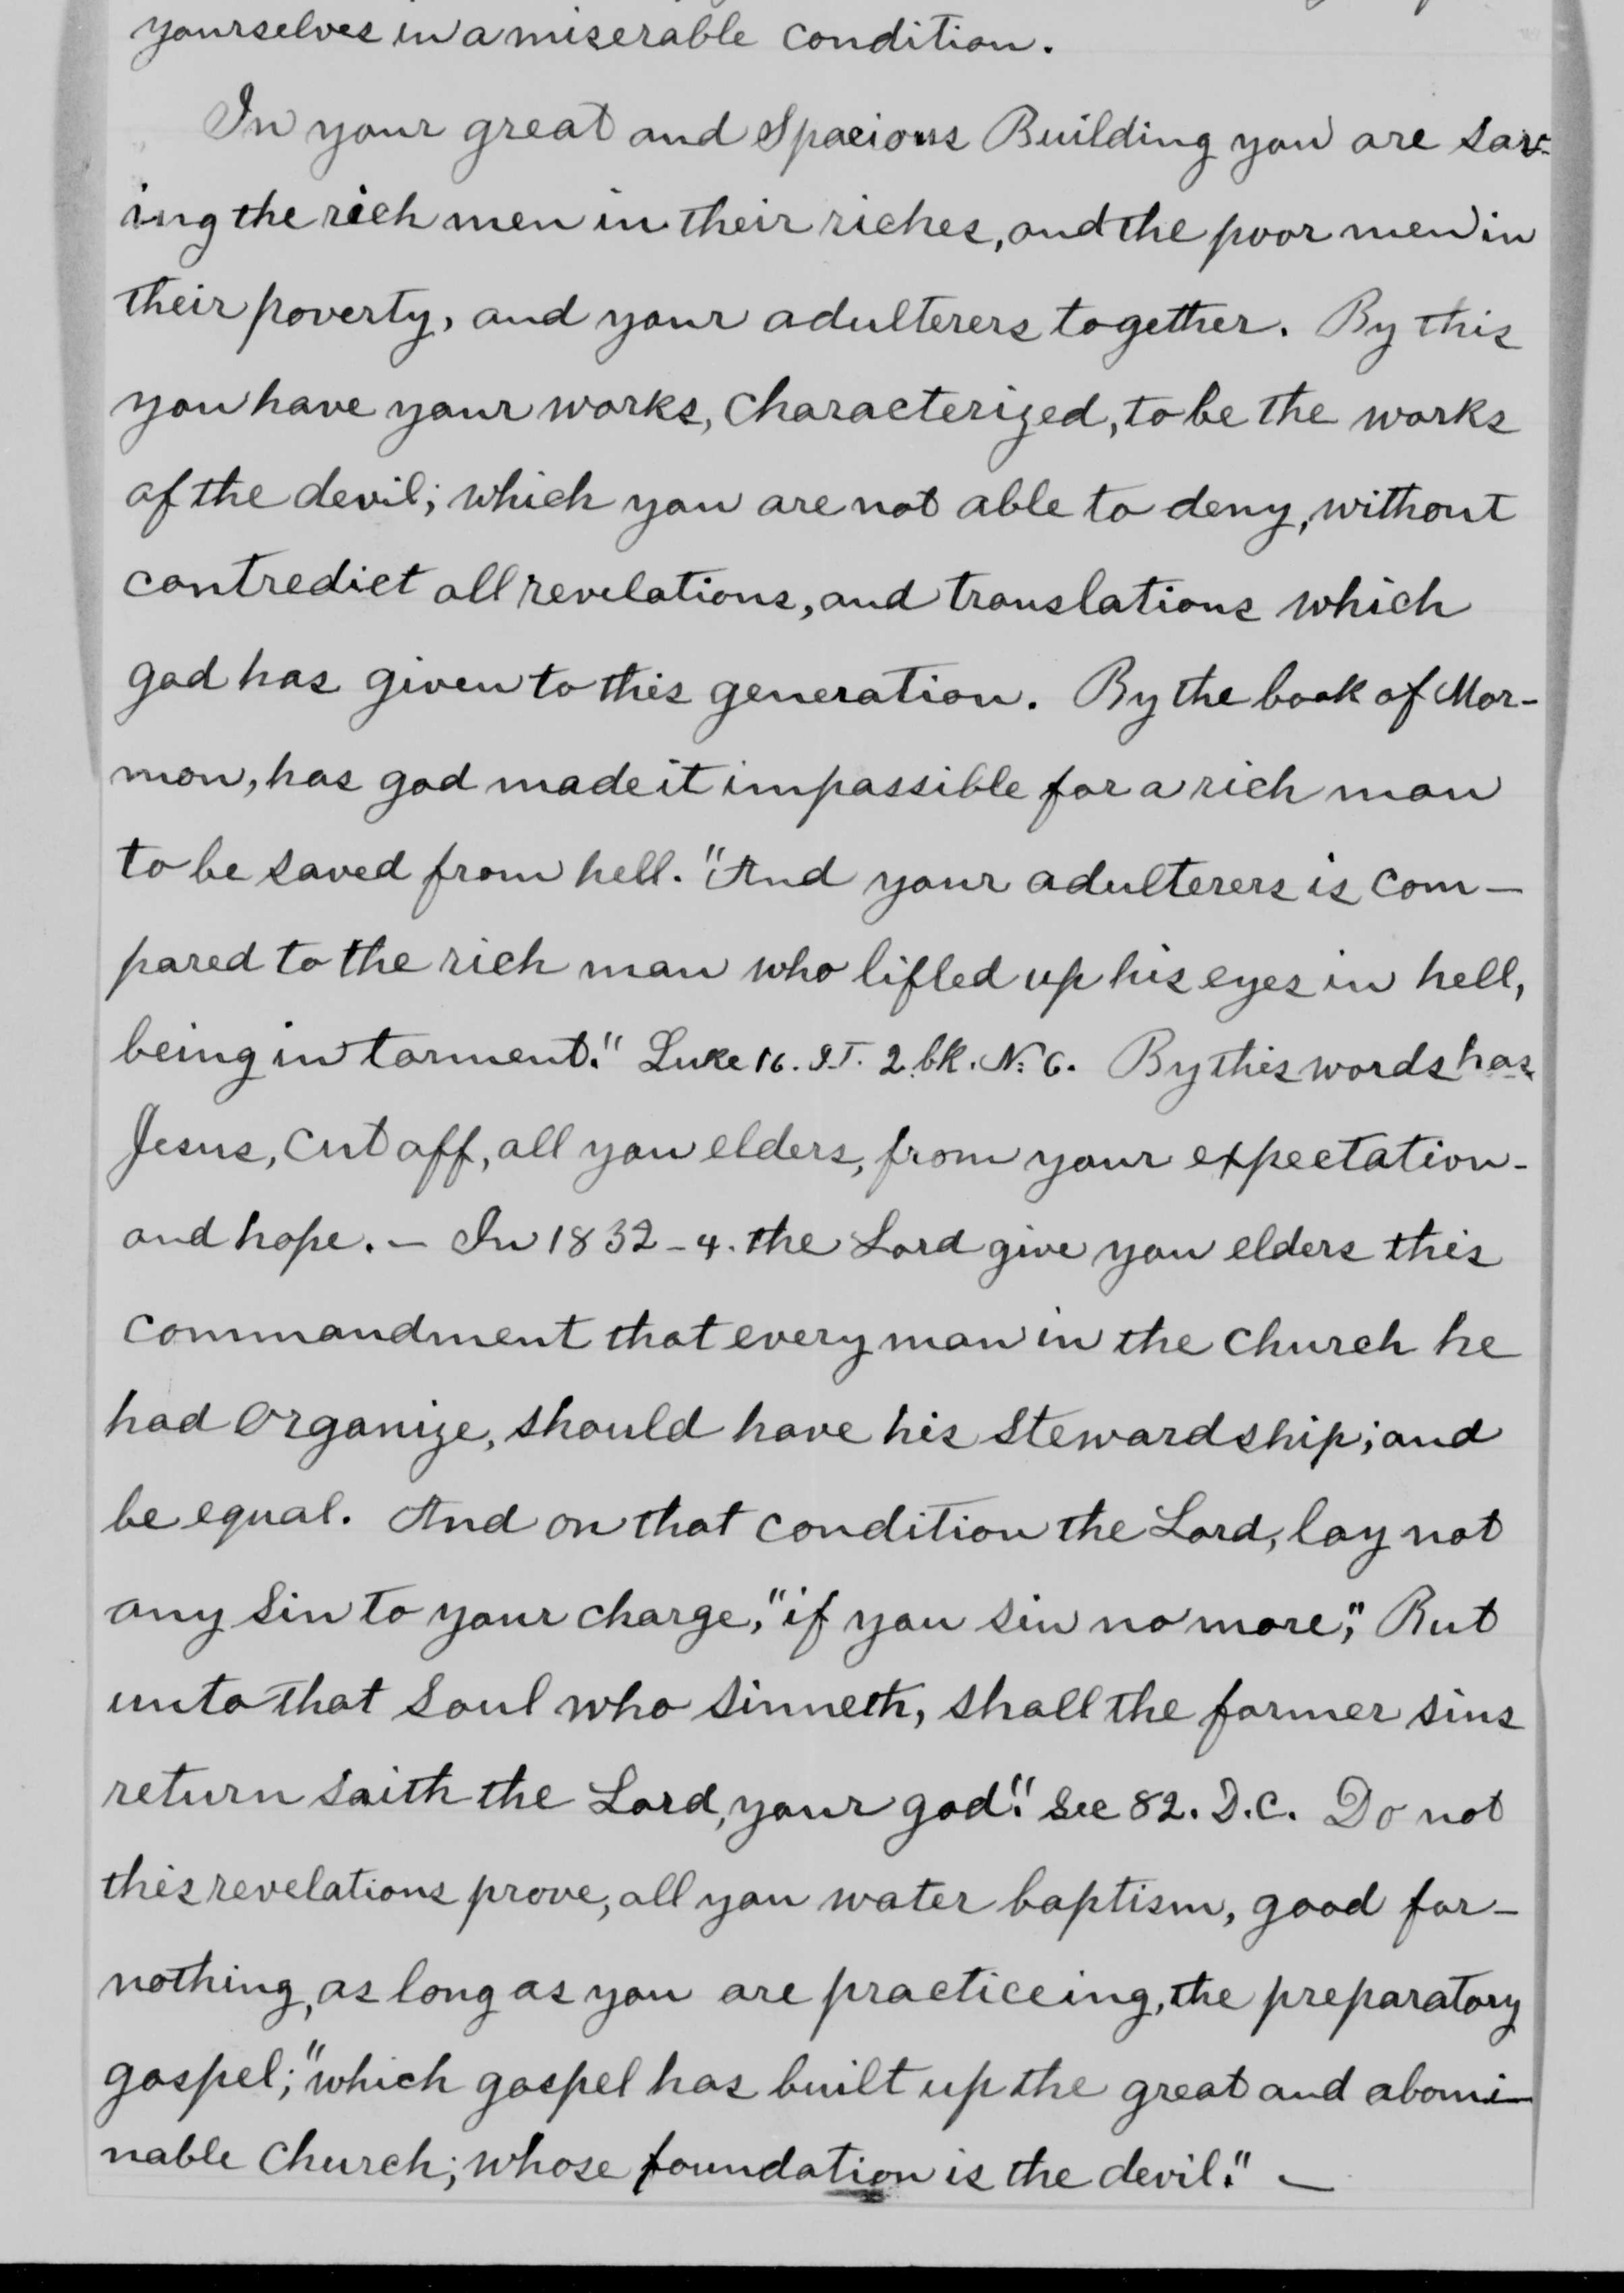 yourselves in a miserable condition.
In your great and Spacious Building you are sav-
ing the rich men in their riches, and the poor men in
their poverty, and your adulterers together. By this
you have your works, Characterized, to be the works
of the devil; which you are not able to deny, without
contredict all revelations, and translations which
god has given to this generation. By the book of Mor-
mon, has god made it impossible for a rich man
to be saved from hell. "And your adulterers is com-
pared to the rich man who lifted up his eyes in hell,
being in torment." Luke 16. I.T. 2 bk. N. 6. By this words has
Jesus, cut off, all you elders, from your expectation-
and hope. — In 1832-4. the Lord give you elders this
commandment that every man in the church he
had organize, should have his stewardship; and
be equal. And on that condition the Lord, lay not
any sin to your charge, "if you sin no more," But
unto that soul who sinneth, shall the former sins
return saith the Lord, your god." See 82. D.C. Do not
this revelations prove, all you water baptism, good for-
nothing, as long as you are practiceing, the preparatory
gospel; "which gospel has built up the great and abomi-
nable church; whose foundation is the devil." —